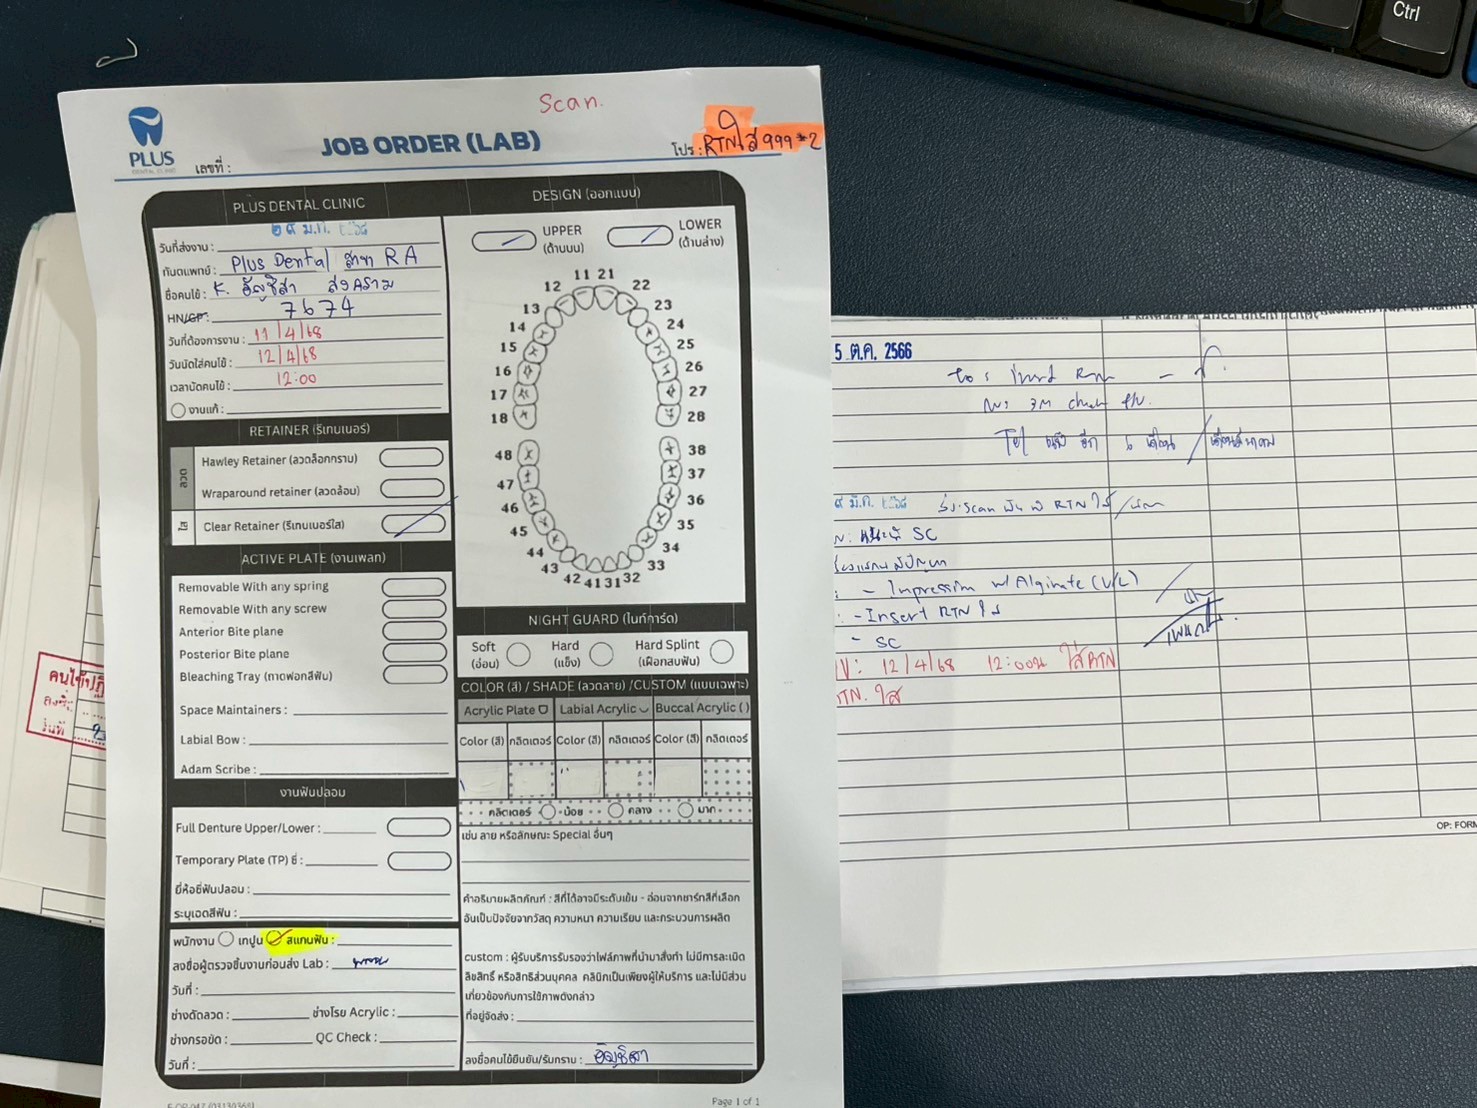 Ctrl
Scan.
PLUS
DENTAL CLINIC
JOB ORDER (LAB)
เลขที่ :
โปร : RTNใส 999*2
PLUS DENTAL CLINIC
วันที่ส่งงาน : ๒๙ ม.ค.
ทันตแพทย์ : Plus Dental สาขา RA
ชื่อคนไข้ : K. อัญชิสา สงคราม
HN/GP : 7674
วันที่ต้องการงาน : 11/4/68
วันนัดใส่คนไข้ : 12/4/68
เวลานัดคนไข้ : 12:00
งานแก้ :
RETAINER (รีเทนเนอร์)
ลวด
Hawley Retainer (ลวดล็อกกราม)
Wraparound retainer (ลวดล้อม)
ใส
Clear Retainer (รีเทนเนอร์ใส)
ACTIVE PLATE (งานเพลท)
Removable With any spring
Removable With any screw
Anterior Bite plane
Posterior Bite plane
Bleaching Tray (ถาดฟอกสีฟัน)
Space Maintainers :
Labial Bow :
Adam Scribe :
งานฟันปลอม
Full Denture Upper/Lower :
Temporary Plate (TP) ซี่ :
ยี่ห้อซี่ฟันปลอม :
ระบุเฉดสีฟัน :
พนักงาน เทปูน สแกนฟัน :
ลงชื่อผู้ตรวจชิ้นงานก่อนส่ง Lab :
วันที่ :
ช่างดัดลวด : ช่างโรย Acrylic :
ช่างกรอขัด : QC Check :
วันที่ :
DESIGN (ออกแบบ)
UPPER (ด้านบน)
LOWER (ด้านล่าง)
11 21
12 22
13 23
14 24
15 25
16 26
17 27
18 28
48 38
47 37
46 36
45 35
44 34
43 33
42 41 31 32
NIGHT GUARD (ไนท์การ์ด)
Soft (อ่อน)
Hard (แข็ง)
Hard Splint (เฝือกสบฟัน)
COLOR (สี) / SHADE (ลวดลาย) /CUSTOM (แบบเฉพาะ)
Acrylic Plate Labial Acrylic Buccal Acrylic ( )
Color (สี) กลิตเตอร์ Color (สี) กลิตเตอร์ Color (สี) กลิตเตอร์
กลิตเตอร์ น้อย กลาง มาก
เช่น ลาย หรือลักษณะ Special อื่นๆ
คำอธิบายผลิตภัณฑ์ : สีที่ได้อาจมีระดับเข้ม - อ่อนจากชาร์ทสีที่เลือก
อันเป็นปัจจัยจากวัสดุ ความหนา ความเรียบ และกระบวนการผลิต
custom : ผู้รับบริการรับรองว่าไฟล์ภาพที่นำมาสั่งทำ ไม่มีการละเมิด
ลิขสิทธิ์ หรือสิทธิส่วนบุคคล คลินิกเป็นเพียงผู้ให้บริการ และไม่มีส่วน
เกี่ยวข้องกับการใช้ภาพดังกล่าว
ที่อยู่จัดส่ง :
ลงชื่อคนไข้ยืนยัน/รับทราบ : อัญชิสา
Page 1 of 1
5 ต.ค. 2566
Tel
Scan ฟัน RTN ใส
SC
- Impression w/ Alginate (U/L)
- Insert RTN ใส
- SC
NV: 12/4/68 12:00น ใส่ RTN
RTN. ใส
OP: FORM
คนไข้ปฏิ
ลงชื่อ
วันที่